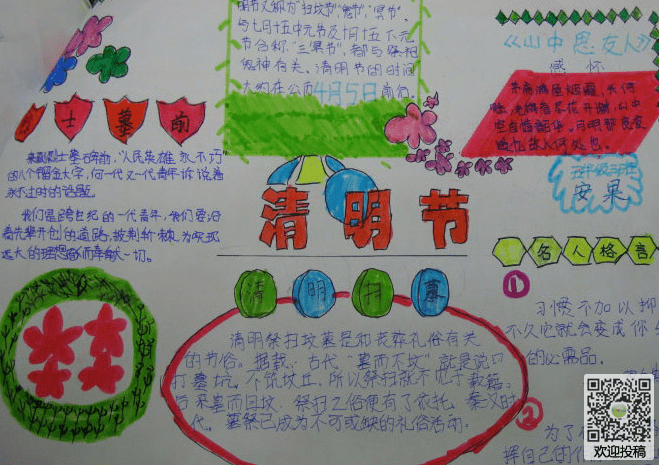 明节又称为"扫坟节","鬼节","冥节".
与七月十五中元节及十月十五下元
节合称"三冥节",都与祭祀
鬼神有关。清明节的时间
大约在公历4月5日前后。
《山中思友人》
感怀
五年级三班
安果
烈士墓前
来到烈士墓石碑前,"人民英雄永不朽"
的八个镏金大字,向一代又一代青年诉说着
永不过时的话题。
我们是跨世纪的一代青年,我们要沿
着先辈开创的道路,披荆斩棘,为实现
远大的理想献而奉献一切。
清明节
清明扫墓
清明祭扫坟墓是和丧葬礼俗有关
的节俗。据载,古代"墓而不坟",就是说只
打墓坑,不筑坟丘,所以祭扫就不见于载籍。
后来墓而且坟,祭扫之俗便有了依托。秦汉时
代,墓祭已成为不可或缺的礼俗活动。
名人格言
1
习惯不加以抑
不久它就会变成你
的必需品。
2
为了
挥自己的
欢迎投稿